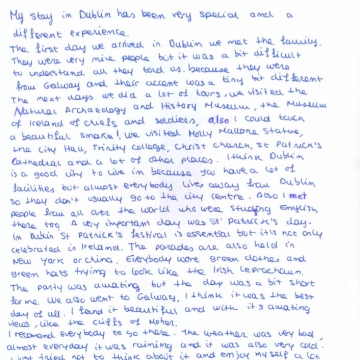 My stay in Dublin has been very special and a
different experience.
The first day we arrived in Dublin we met the family.
They were very nice people but it was a bit difficult
to understand all they told us. because they were
from Galway and their accent was a tiny bit different
The next days we did a lot of tours, we visited the
Natural Archaeology and History Museum, the Museum
of Ireland of chiefs and soldiers, also I could touch
a beautiful smake! we visited Molly Mallone statue,
the City Hall, Trinity college, Christ church, St Patrick's
Cathedral and a lot of other places. I think Dublin
is a good city to live in because you have a lot of
facilities but almost everybody lives away from Dublin
so they don't usually go to the city centre. Also I met
people from all over the world who were studing English
there too. A very important day was St Patrick's day.
In Dublin St Patrick's festival is essential but it's not only
celebrated in Ireland. The parades are also held in
New York or China. Everybody wore green clothes and
green hats trying to look like the Irish Leprechaun.
The party was amating but the day was a bit short
for me. We also went to Galway, I think it was the best
day of all. I found it beautiful and with it's amating
views, like the cliffs of Moher.
I recomend everybody to go there. The weather was very bad,
almost everyday it was raining and it was also very cold.
I just tried not to think about it and enjoy myself a lot.